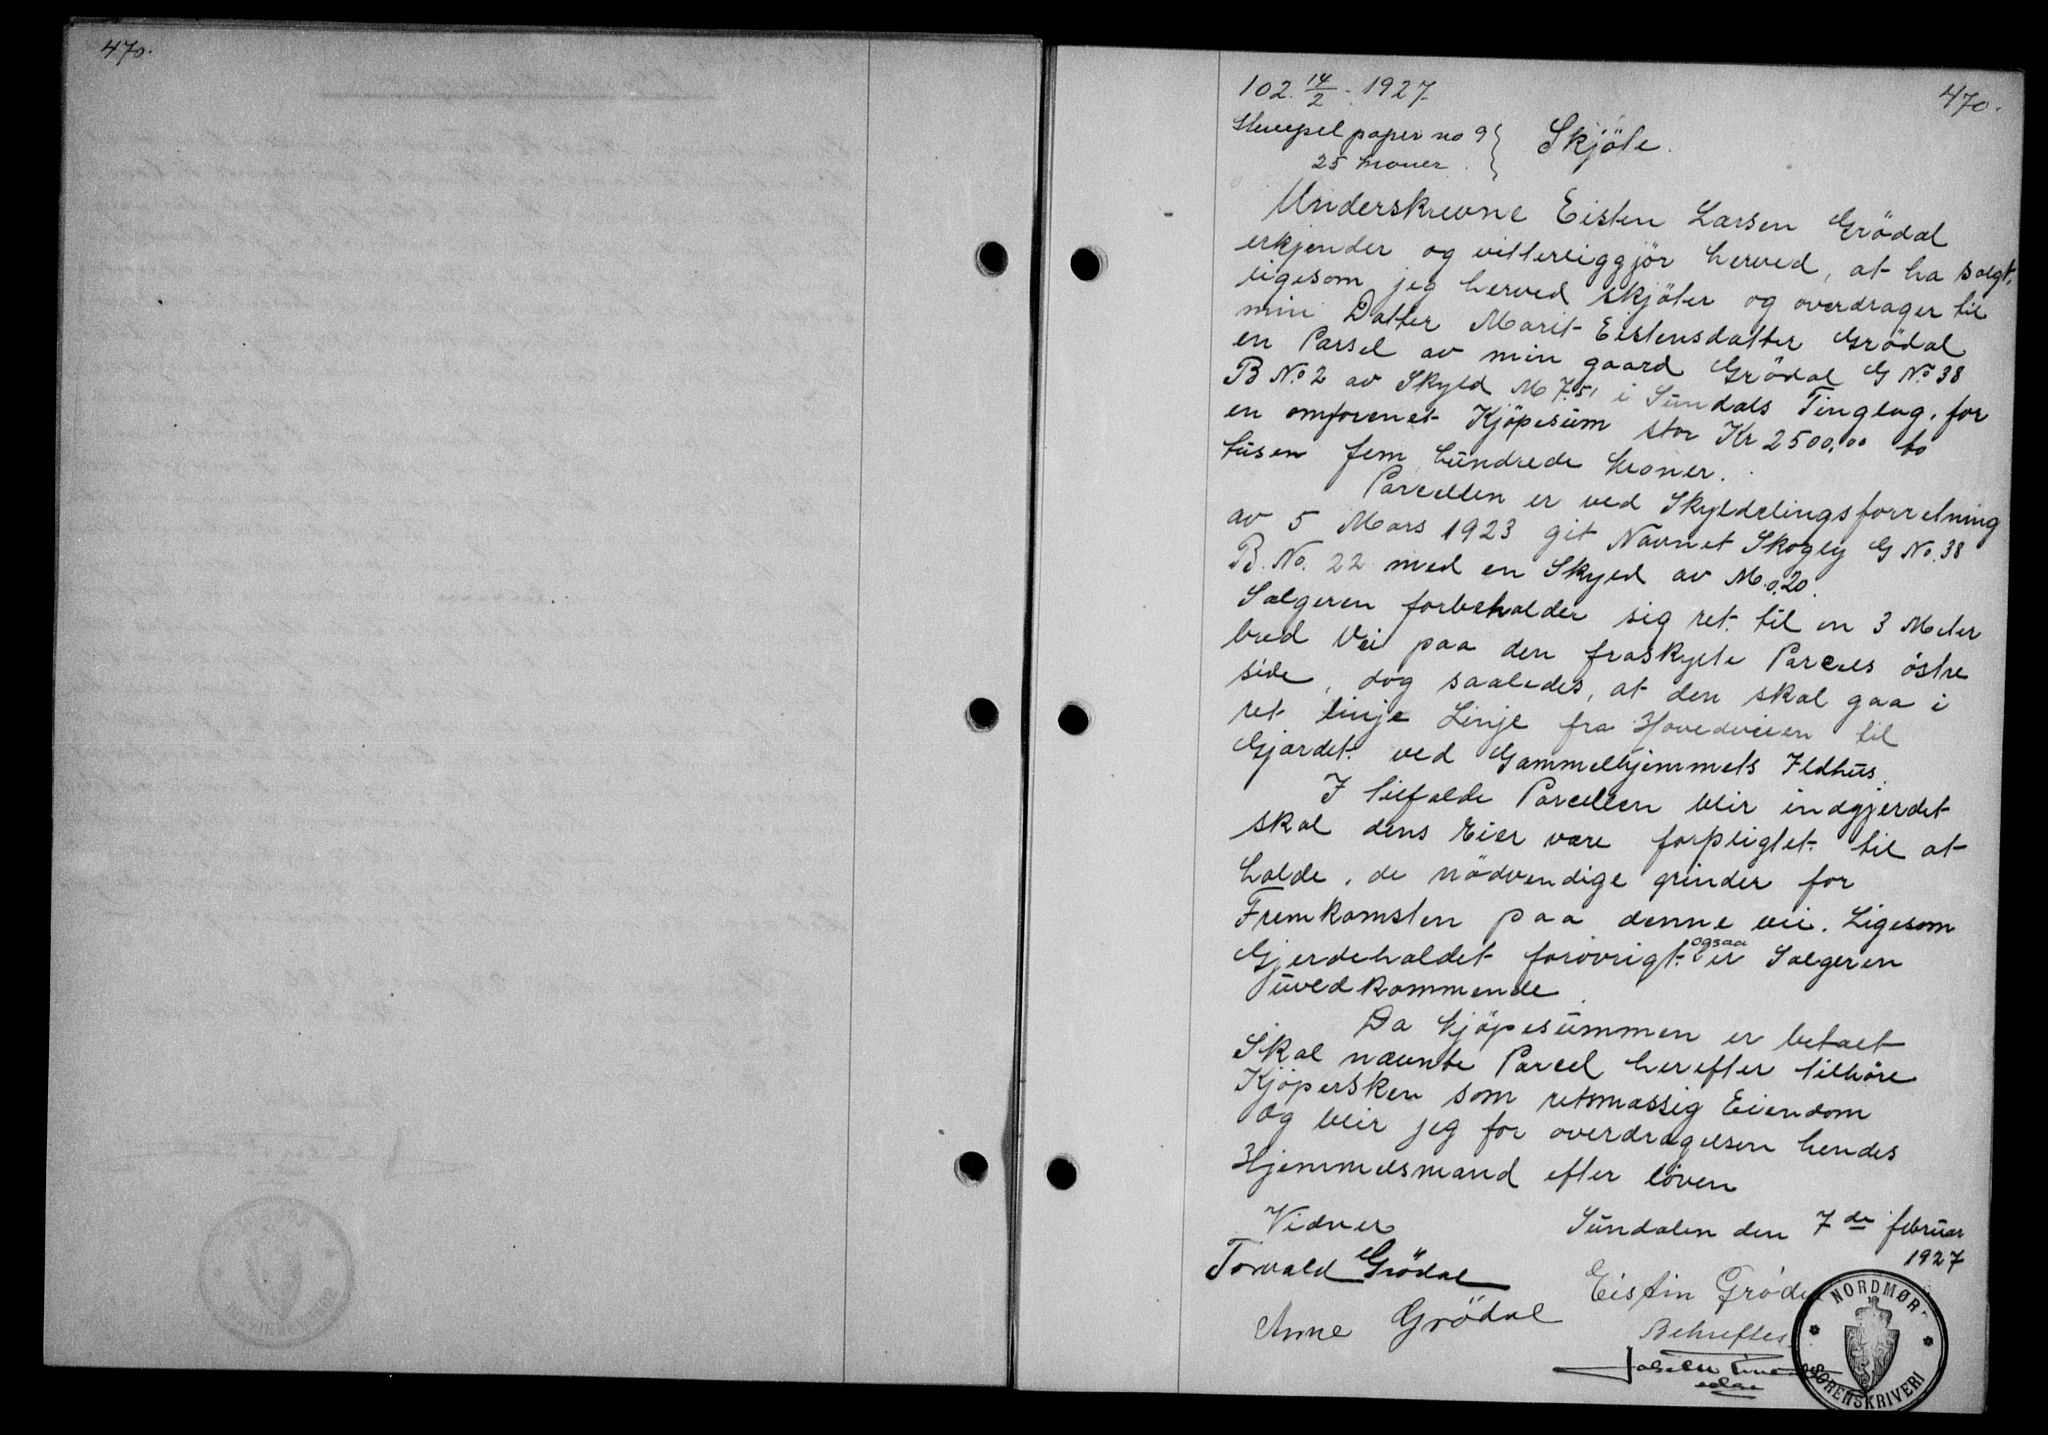 470.
102. 14/2. 1927.
470.
Stempel papir no 9
25 kroner.
Skjöte.
Underskrevne Eisten Larsen Grödal
erkjender og vitterliggjör herved, at ha solgt,
ligesom jeg herved skjöter og overdrager til
min Datter Marit Eistensdatter Grödal
en Parsel av min gaard Grödal G No. 38
B No. 2 av Skyld M 7.51 i Sundals Tinglag, for
en omforenet Kjöpesum stor Kr 2500,00 to
tusen fem hundrede kroner.
Parcellen er ved Skylddelingsforretning
av 5 Mars 1923 git Navnet Skogly G No. 38
B. No. 22 med en Skyld av M. 0,20.
Sælgeren forbeholder sig ret til en 3 Meter
bred Vei paa den fraskylte Parcels östre
side, dog saaledes, at den skal gaa i
ret linje Linje fra Hovedveien til
Gjærdet ved Gammelhjemmets Ildhus.
I tilfælde Parcellen blir indgjerdet
skal dens Eier være forpligtet til at
holde, de nödvendige grinder for
Fremkomsten paa denne vei. Ligesom
Gjerdeholdet forövrigt ogsaa er Sælgeren
uvedkommende.
Da kjöpesummen er betalt
Skal nævnte Parcel herefter tilhöre
Kjöpersken som retmæssig Eiendom
og blir jeg for overdragelsen hendes
Hjemmelsmand efter loven
Vidner
Sundalen den 7de februar
1927
Torvald Grödal
Eistin Grödal
Anne Grödal
Bekreftes
NORDMØR
SORENSKRIVERI